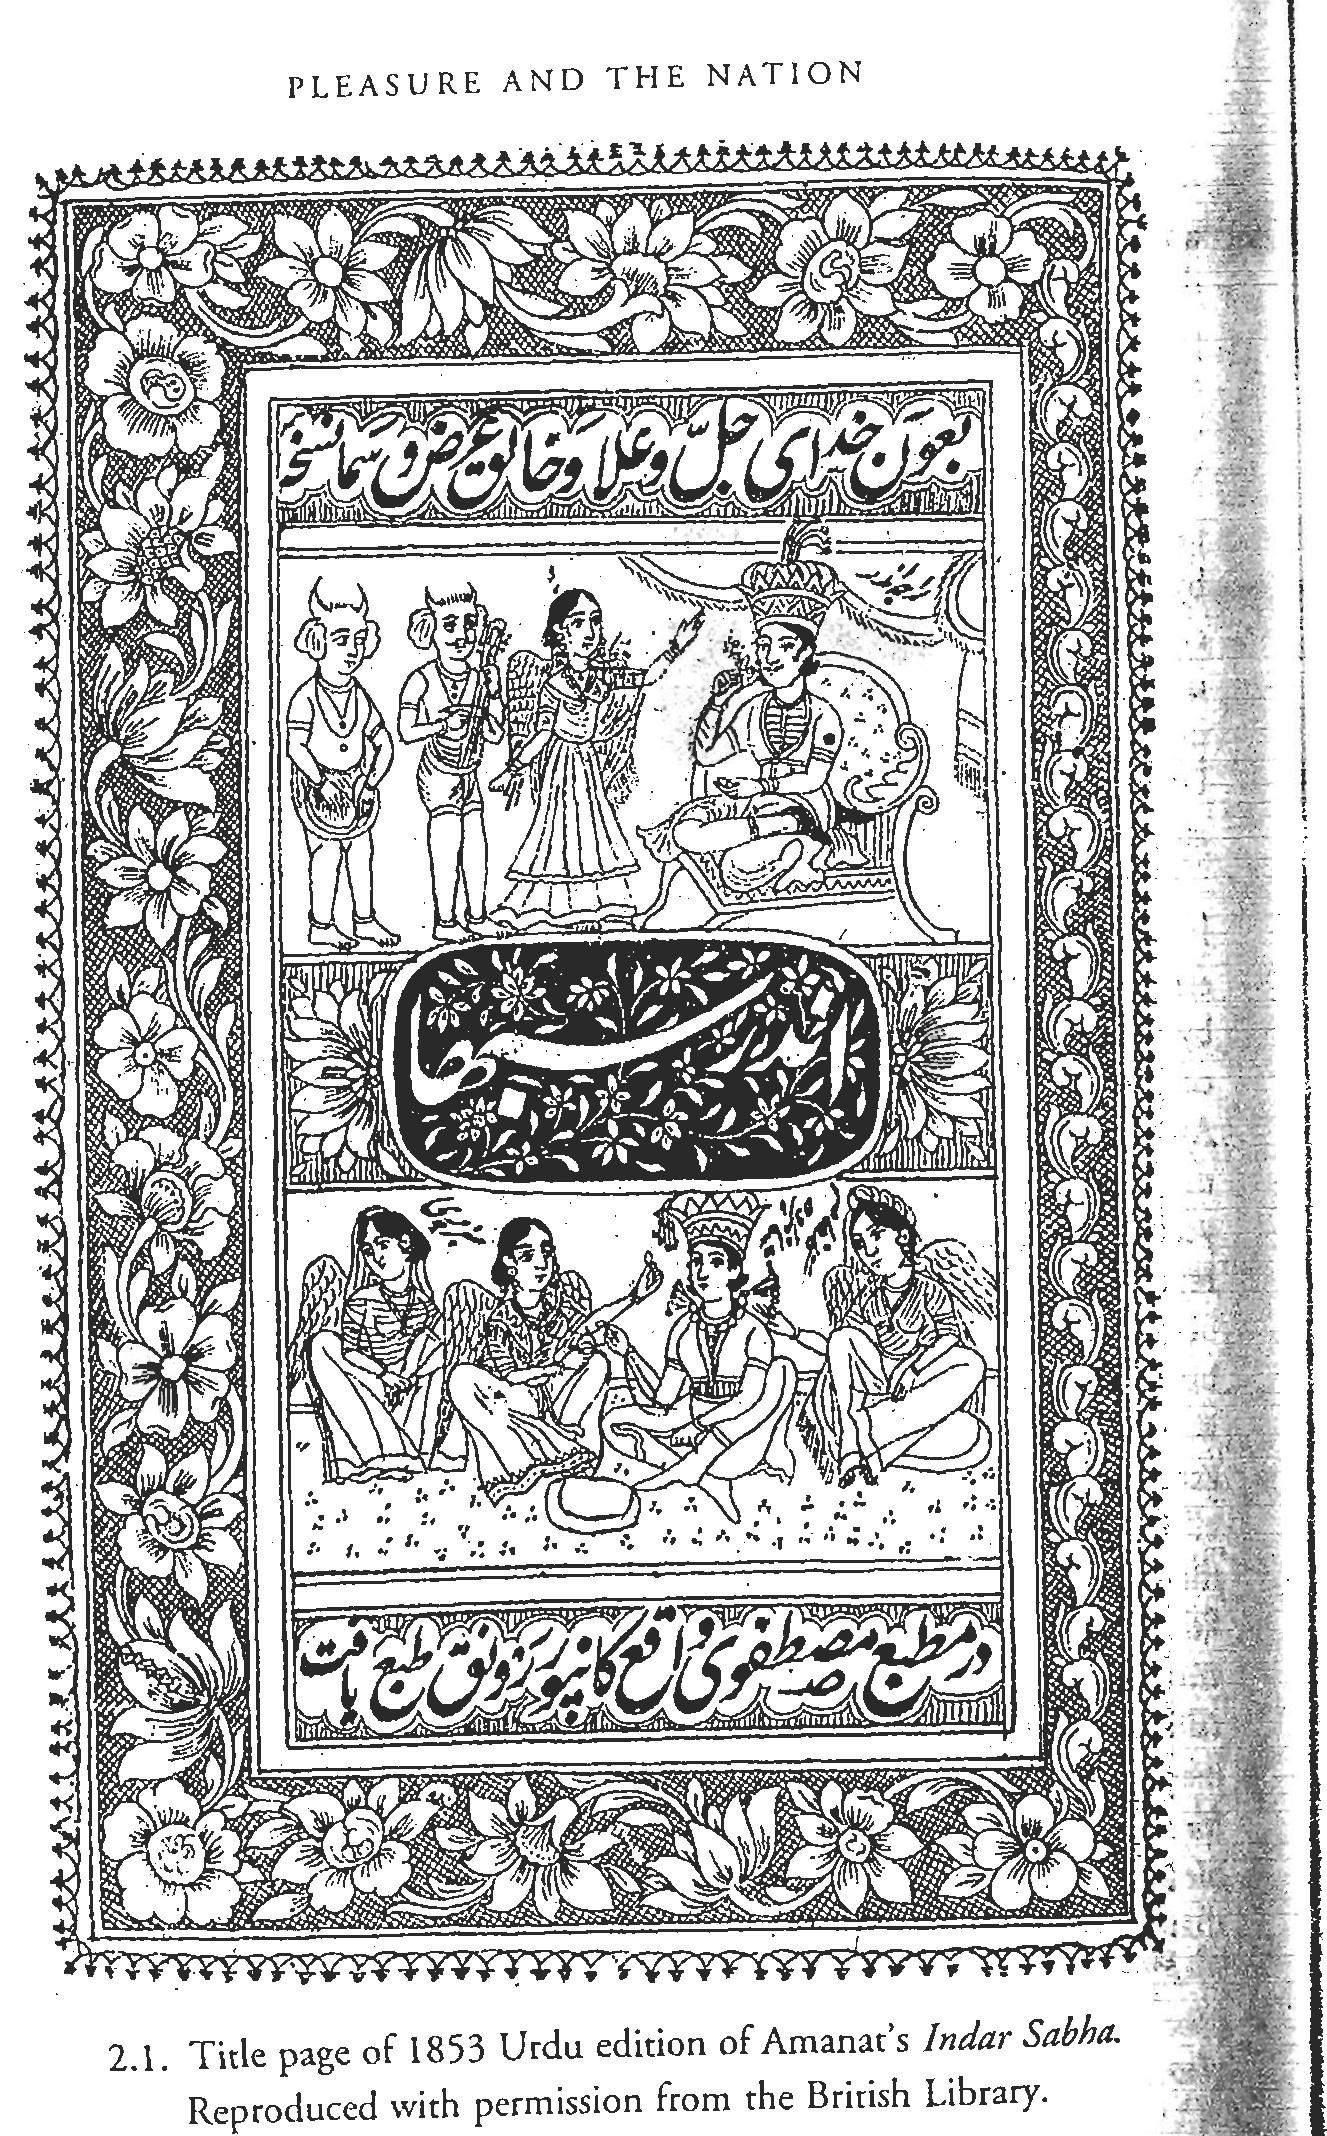 PLEASURE AND THE NATION
بعون خدای جل و علا و خالق ارض و سما نسخہ
اندر سبھا
در مطبع مصطفوی واقع کانپور رونق طبع یافت
2.1. Title page of 1853 Urdu edition of Amanat's Indar Sabha.
Reproduced with permission from the British Library.